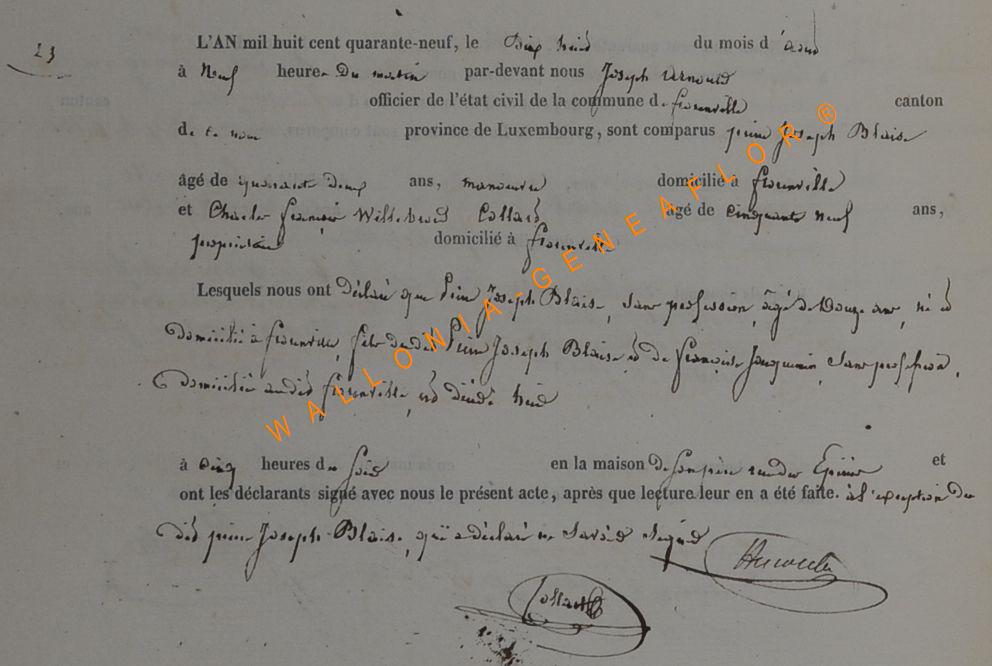 23
L'AN mil huit cent quarante-neuf, le Dix huit du mois d'août
à Neuf heures Du matin par-devant nous Joseph
officier de l'état civil de la commune de florenville canton
de ce nom province de Luxembourg, sont comparus pierre Joseph Blaise
âgé de quarante deux ans, manoeuvre domicilié à florenville
et Charles françois Willebrord Collard âgé de cinquante neuf ans,
propriétaire domicilié à florenville
Lesquels nous ont déclaré que Pierre Joseph Blaise, sans profession, âgé de Douze ans, né et
Domicilié à florenville, fils dudit Pierre Joseph Blaise et de françoise Jacquemin, sans profession,
Domiciliée audit florenville, est décédé hier
à cinq heures du soir en la maison de son père et
ont les déclarants signé avec nous le présent acte, après que lecture leur en a été faite. à l'exception du
dit pierre Joseph Blaise, qui a déclaré ne savoir signer
Collard
WALLONIA-GENEAFLOR®